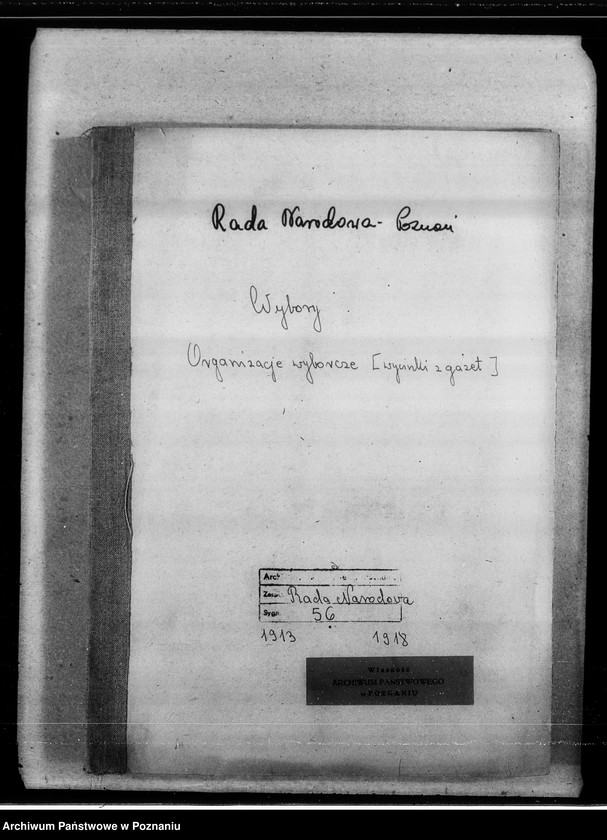 Rada Narodowa - Poznań
Wybory
Organizacje wyborcze [wycinki z gazet]
Arch
Zesp. Rada Narodowa
Sygn. 56
1913 1918
Własność
ARCHIWUM PAŃSTWOWEGO
w POZNANIU
Archiwum Państwowe w Poznaniu